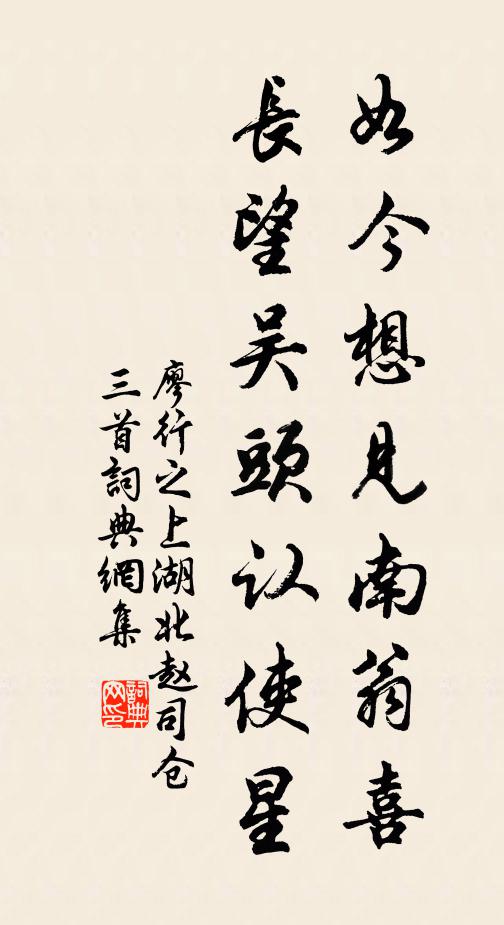 如今想見南翁喜
長望吴頭认使星
廖行之上湖北赵司仓
三首詞典網集
詞典
网印